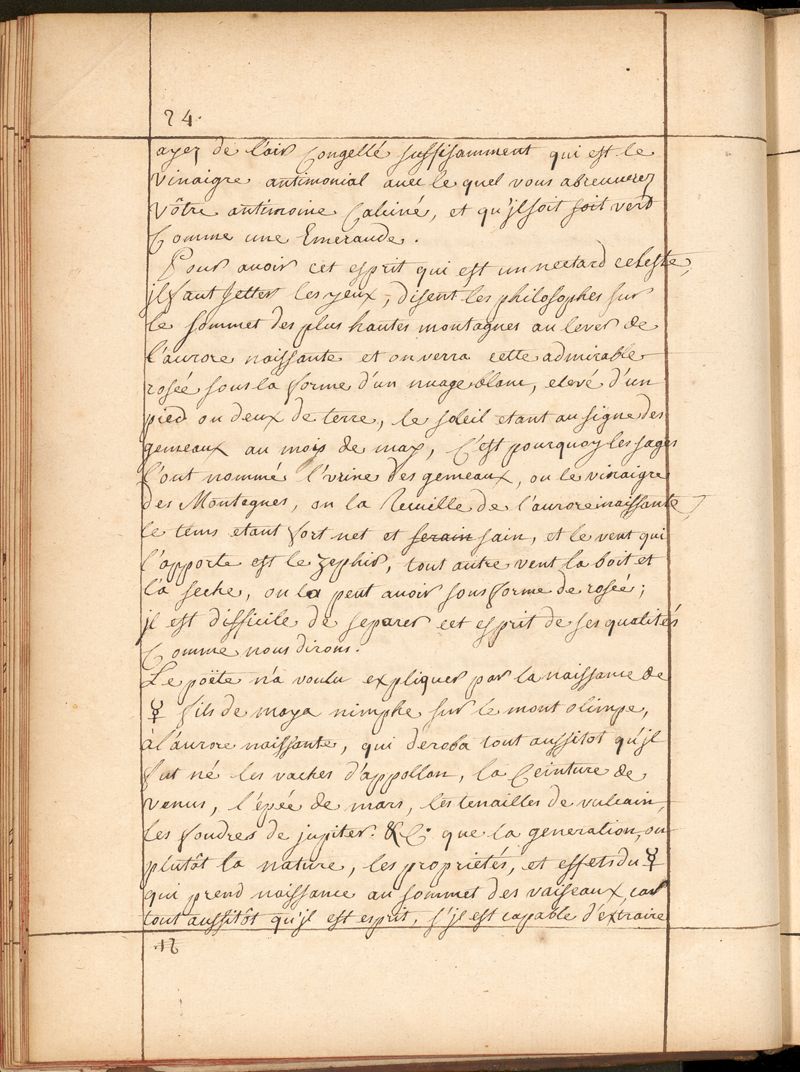 24.
ayez de l'air Congellé suffisamment qui est le
vinaigre antimonial avec le quel vous abreuverez
vôtre antimoine Calciné, et qu'jl soit soit verd
Comme une Emeraude.
Pour avoir cet esprit qui est un nectard celeste,
jl faut Jetter les yeux, disent les philosophes sur
le sommet des plus hautes montagnes au lever de
l'aurore naissante et on verra cette admirable
rosée sous la forme d'un nuage blanc, elevé d'un
pied ou deux de terre, le soleil etant au signe des
gemeaux au mois de may, C'est pourquoy les sages
l'ont nommé l'vrine des gemeaux, ou le vinaigre
des Montagnes, ou la de l'aurore naissante
le tems etant fort net et serain sain, et le vent qui
l'apporte est le zephir, tout autre vent la boit et
la seche, on la peut avoir sous forme de rosée;
jl est difficile de separer cet esprit de ses qualités
Comme nous dirons.
Le poëte n'a voulu expliquer par la naissance de
☿ fils de maya nimphe sur le mont olimpe,
à l'aurore naissante, qui deroba tout aussitot qu'jl
fut né les vaches d'appollon, la Ceinture de
venus, l'épée de mars, les tenailles de vulcain,
les foudres de jupiter. &C. que la generation, ou
plutôt la nature, les propriétés, et effets du ☿
qui prend naissance au sommet des vaiseaux, car
tout aussitôt qu'jl est esprit, s'jl est capable d'extraire